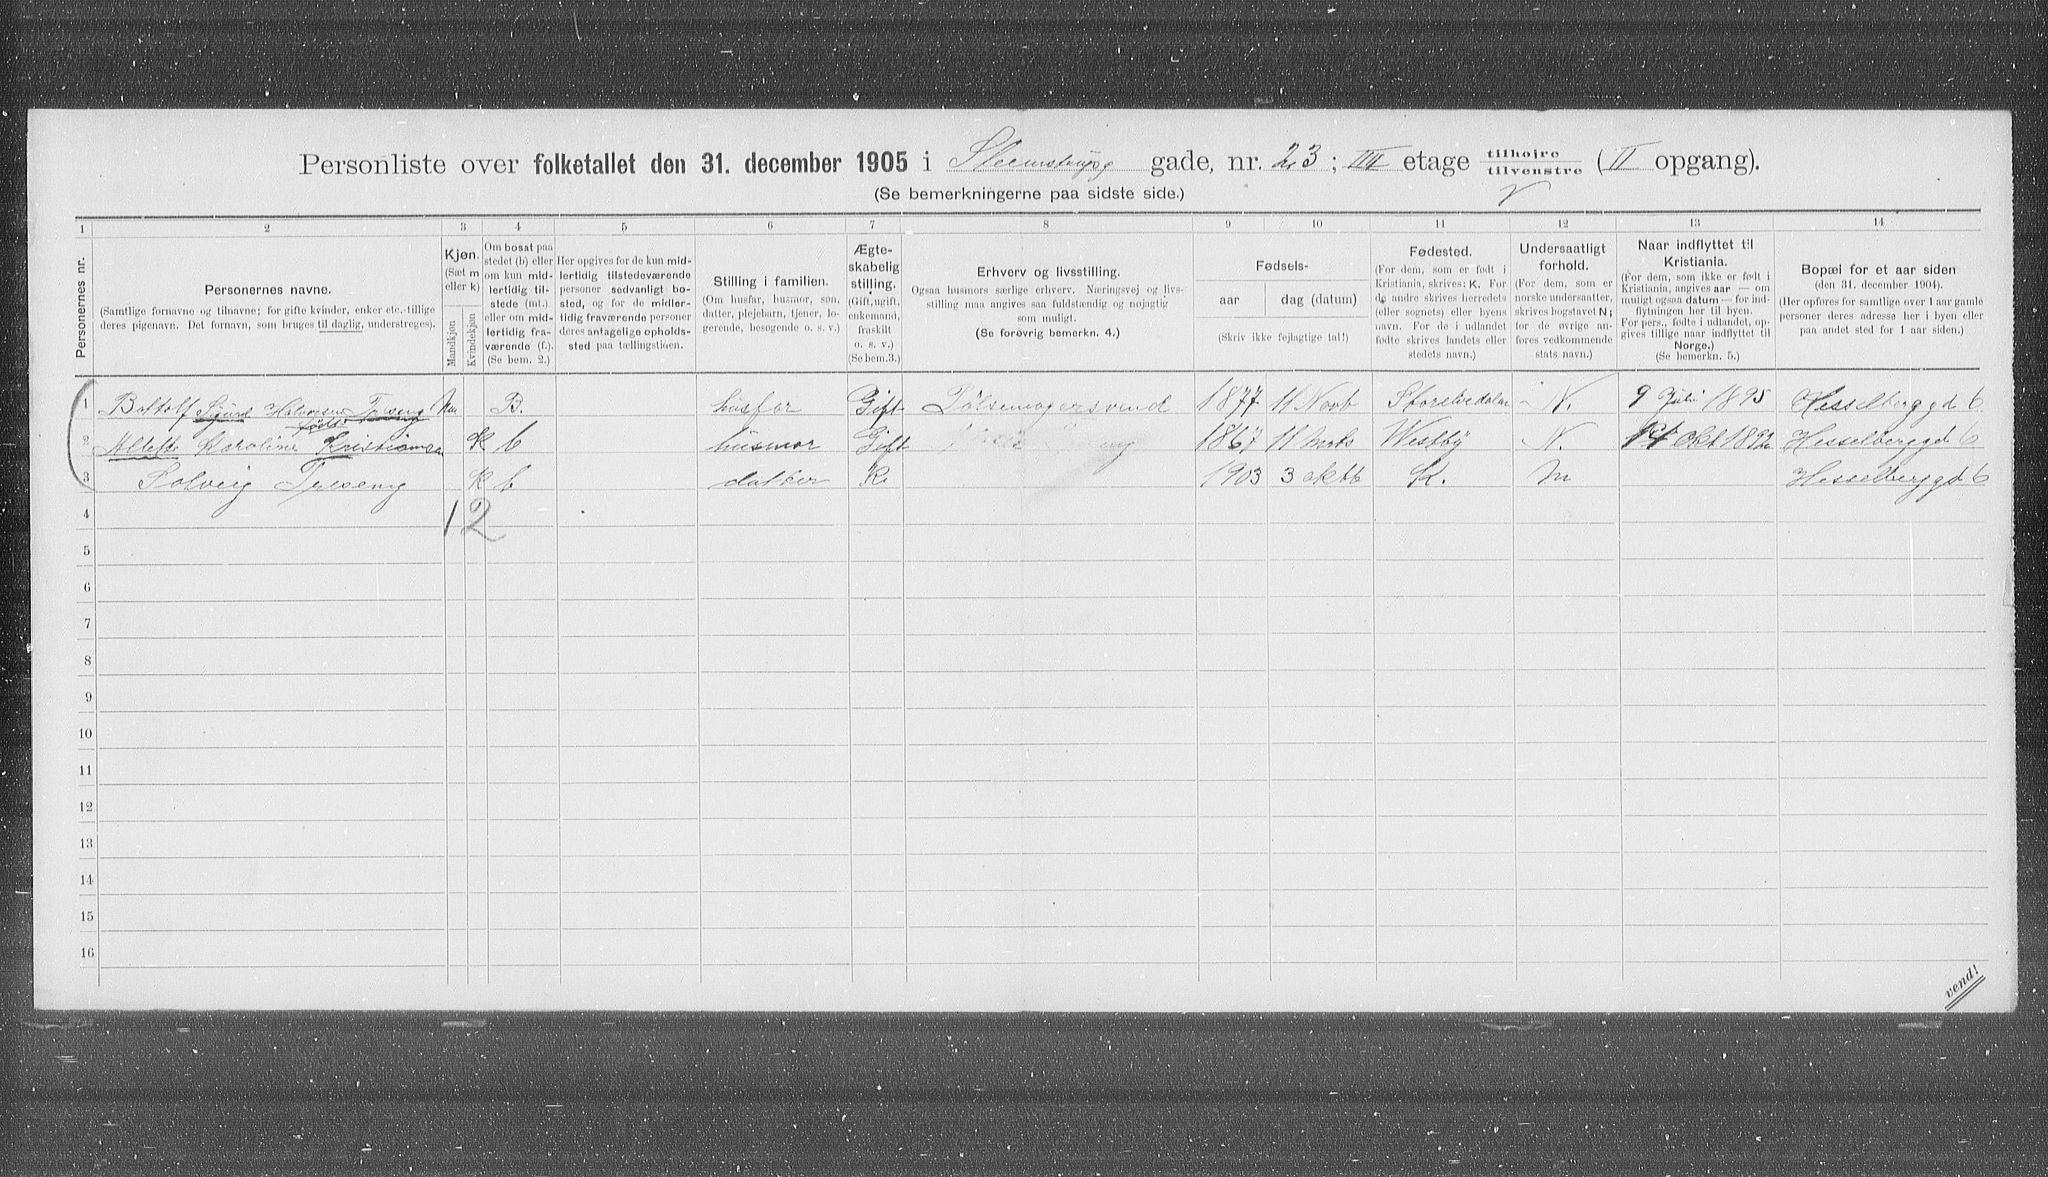 Personliste over folketallet den 31. december 1905 i Steenstrups gade, nr. 23; III etage tilhøjre / tilvenstre (II opgang).
V
(Se bemerkningerne paa sidste side.)
1 2 3 4 5 6 7 8 9 10 11 12 13 14
Personernes nr.
Personernes navne.
(Samtlige fornavne og tilnavne; for gifte kvinder, enker etc. tillige deres pigenavn. Det fornavn, som bruges til daglig, understreges).
Kjøn.
(Sæt m eller k)
Mandkjøn
Kvindekjøn
Om bosat paa stedet (b) eller om kun midlertidig tilstede (mt.) eller om midlertidig fraværende (f.). (Se bem. 2.)
Her opgives for de kun midlertidig tilstedeværende personer sedvanlig bosted, og for de midlertidig fraværende personer deres antagelige opholdssted paa tællingstiden.
Stilling i familien.
(Om husfar, husmor, søn, datter, plejebarn, tjener, logerende, besøgende o. s. v.)
Ægteskabelig stilling.
(Gift, ugift, enkemand, fraskilt o. s. v.)
(Se bem. 3.)
Erhverv og livsstilling.
Ogsaa husmors særlige erhverv. Næringsvej og livsstilling maa angives saa fuldstændig og nøjagtig som muligt.
(Se forøvrig bemerkn. 4.)
Fødsels-
aar
dag (datum)
(Skriv ikke fejlagtige tal!)
Fødested.
(For dem, som er født i Kristiania, skrives: K. For de andre skrives herredets (eller sognets) eller byens navn. For de i udlandet fødte skrives landets eller stedets navn.)
Undersaatligt forhold.
(For dem, som er norske undersaatter, skrives bogstavet N; for de øvrige anføres vedkommende stats navn.)
Naar indflyttet til Kristiania.
(For dem, som ikke er født i Kristiania, angives aar — om muligt ogsaa datum — for indflytningen her til byen. For pers., fødte i udlandet, opgives tillige naar indflyttet til Norge.)
(Se bemerkn. 5.)
Bopæl for et aar siden
(den 31. december 1904).
(Her opføres for samtlige over 1 aar gamle personer deres adresse her i byen eller paa andet sted for 1 aar siden.)
1 Sigurd Halvorsen Treseng B. husfar Gift 1877 11 Novb N. 9 Juli 1895 Hesselberggd 6
født
2 Karoline Kristiansen K b husmor Gift 1867 11 Westby N. 14 Okt 1892 Hesselberggd 6
3 Solveig Treseng K b datter 1903 3 oktb K. N Hesselberggd 6
1 2
4
5
6
7
8
9
10
11
12
13
14
15
16
vend!